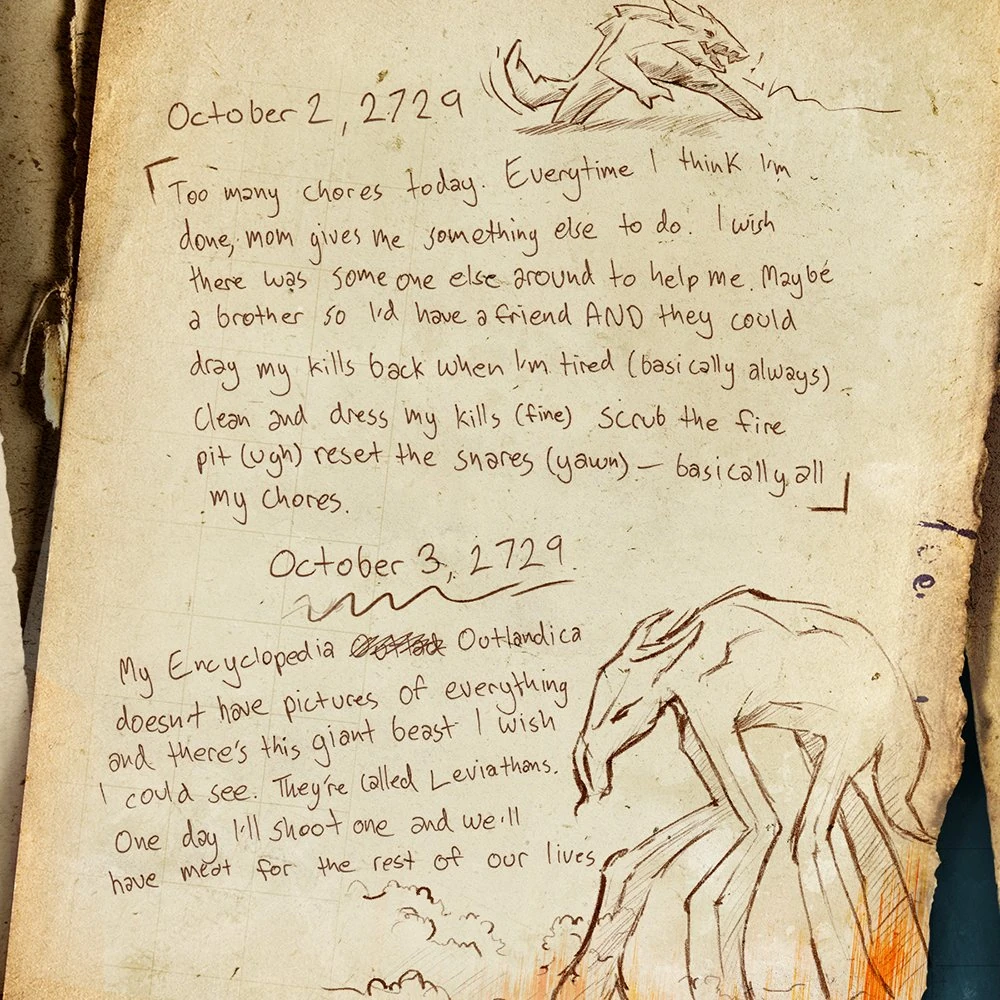 October 2, 2729
Too many chores today. Everytime I think I'm
done, mom gives me something else to do. I wish
there was someone else around to help me. Maybe
a brother so I'd have a friend AND they could
drag my kills back when I'm tired (basically always)
Clean and dress my kills (fine) Scrub the fire
pit (ugh) reset the snares (yawn) — basically all
my chores.
October 3, 2729.
My Encyclopedia Outlandica
doesn't have pictures of everything
and there's this giant beast I wish
I could see. They're called Leviathans.
One day I'll shoot one and we'll
have meat for the rest of our lives